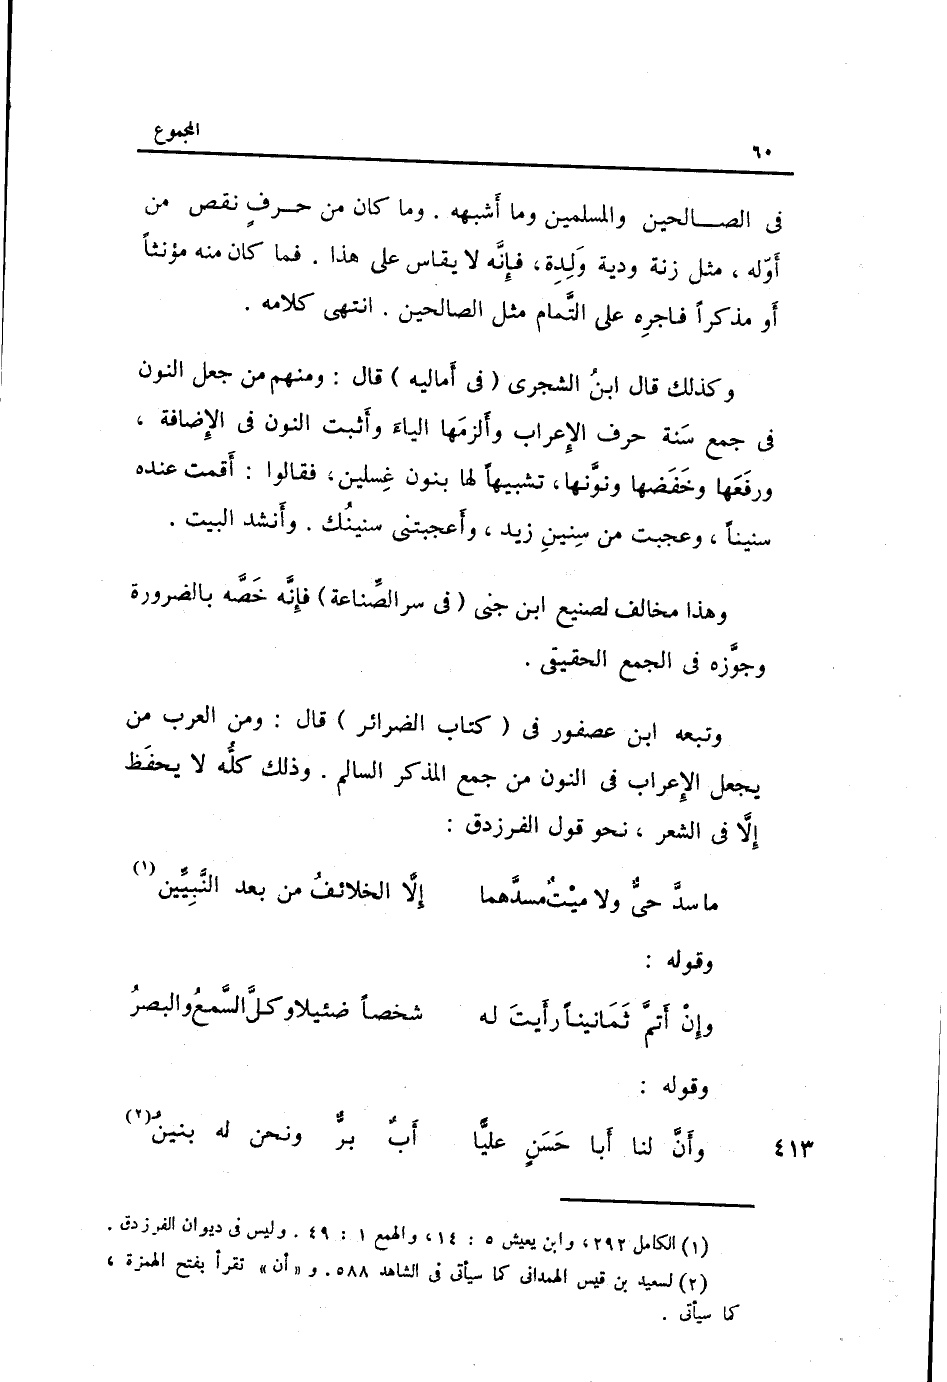 ٦٠ المجموع
فى الصــالحين والمسلمين وما أَشبهه . وما كان من حــرفٍ نقص من
أَوّله ، مثل زنة ودية وَلِدِة، فإِنَّه لا يقاس على هذا . فما كان منه مؤنثاً
أَو مذكراً فاجرِه على التَّمام مثل الصالحين . انتهى كلامه .
وكذلك قال ابنُ الشجرى ( فى أَماليه ) قال : ومنهم من جعل النون
فى جمع سَنة حرف الإِعراب وأَلزمَها الياءَ وأَثبت النون فى الإِضافة ،
ورفَعَها وخَفَضها ونوَّنها، تشبيهاً لها بنون غِسلين، فقالوا : أَقمت عنده
سنيناً ، وعجبت من سِنِينِ زيد ، وأَعجبتنى سنينُك . وأَنشد البيت .
وهذا مخالف لصنيع ابن جنى ( فى سر الصِّناعة ) فإِنَّه خَصَّه بالضرورة
وجوَّزه فى الجمع الحقيقى .
وتبعه ابن عصفور فى ( كتاب الضرائر ) قال : ومن العرب من
يجعل الإِعراب فى النون من جمع المذكر السالم . وذلك كلُّه لا يحفَظ
إِلَّا فى الشعر ، نحو قول الفرزدق :
ما سدَّ حىٌّ ولا ميْتٌ مسدَّهما إِلَّا الخلائفُ من بعد النَّبِيِّين (١)
وقوله :
وإِنْ أَتمَّ ثَمَانيناً رأَيتَ له شخصاً ضئيلا وكلَّ السَّمعُ والبصرُ
وقوله :
٤١٣ وأَنَّ لنا أَبا حَسَنٍ عليًّا أَبٌ برٌّ ونحن له بنينُ (٢)
(١) الكامل ٢٩٢، وابن يعيش ٥ : ١٤، والهمع ١ : ٤٩ . وليس فى ديوان الفرزدق .
(٢) لسعيد بن قيس الهمدانى كما سيأتى فى الشاهد ٥٨٨. و « أن » تقرأ بفتح الهمزة ،
كما سيأتى .